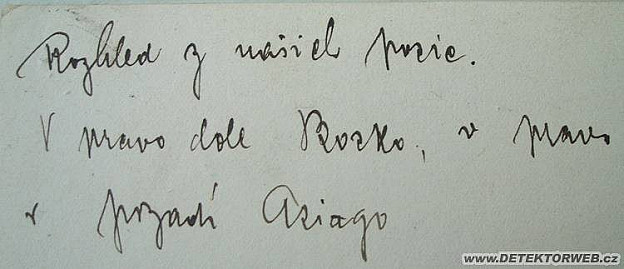 Rozhled z našich pozic.
V pravo dole Rocko, v pravo
v pozadí Asiago
www.DETEKTORWEB.cz